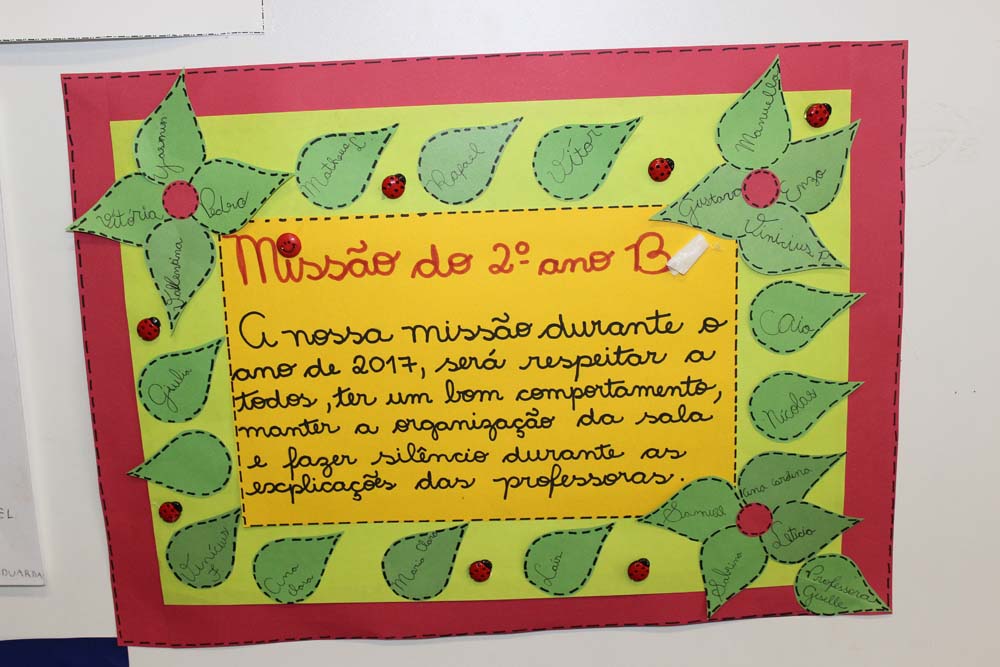 Yasmin
Vitória
Pedro
Vallentina
Matheus L
Rafael
Vitor
Manuella
Gustavo
Enzo
Vinicius P.
Missão do 2º ano B
A nossa missão durante o
ano de 2017, será respeitar a
todos, ter um bom comportamento,
manter a organização da sala
e fazer silêncio durante as
explicações das professoras.
Caio
Nicolas
Giulia
Vinícius
F
Ana
Clara
Maria Clara
Laís
Samuel
Ana Carolina
Letícia
Sabrina
Professora
Giselle
EL
DUARDA